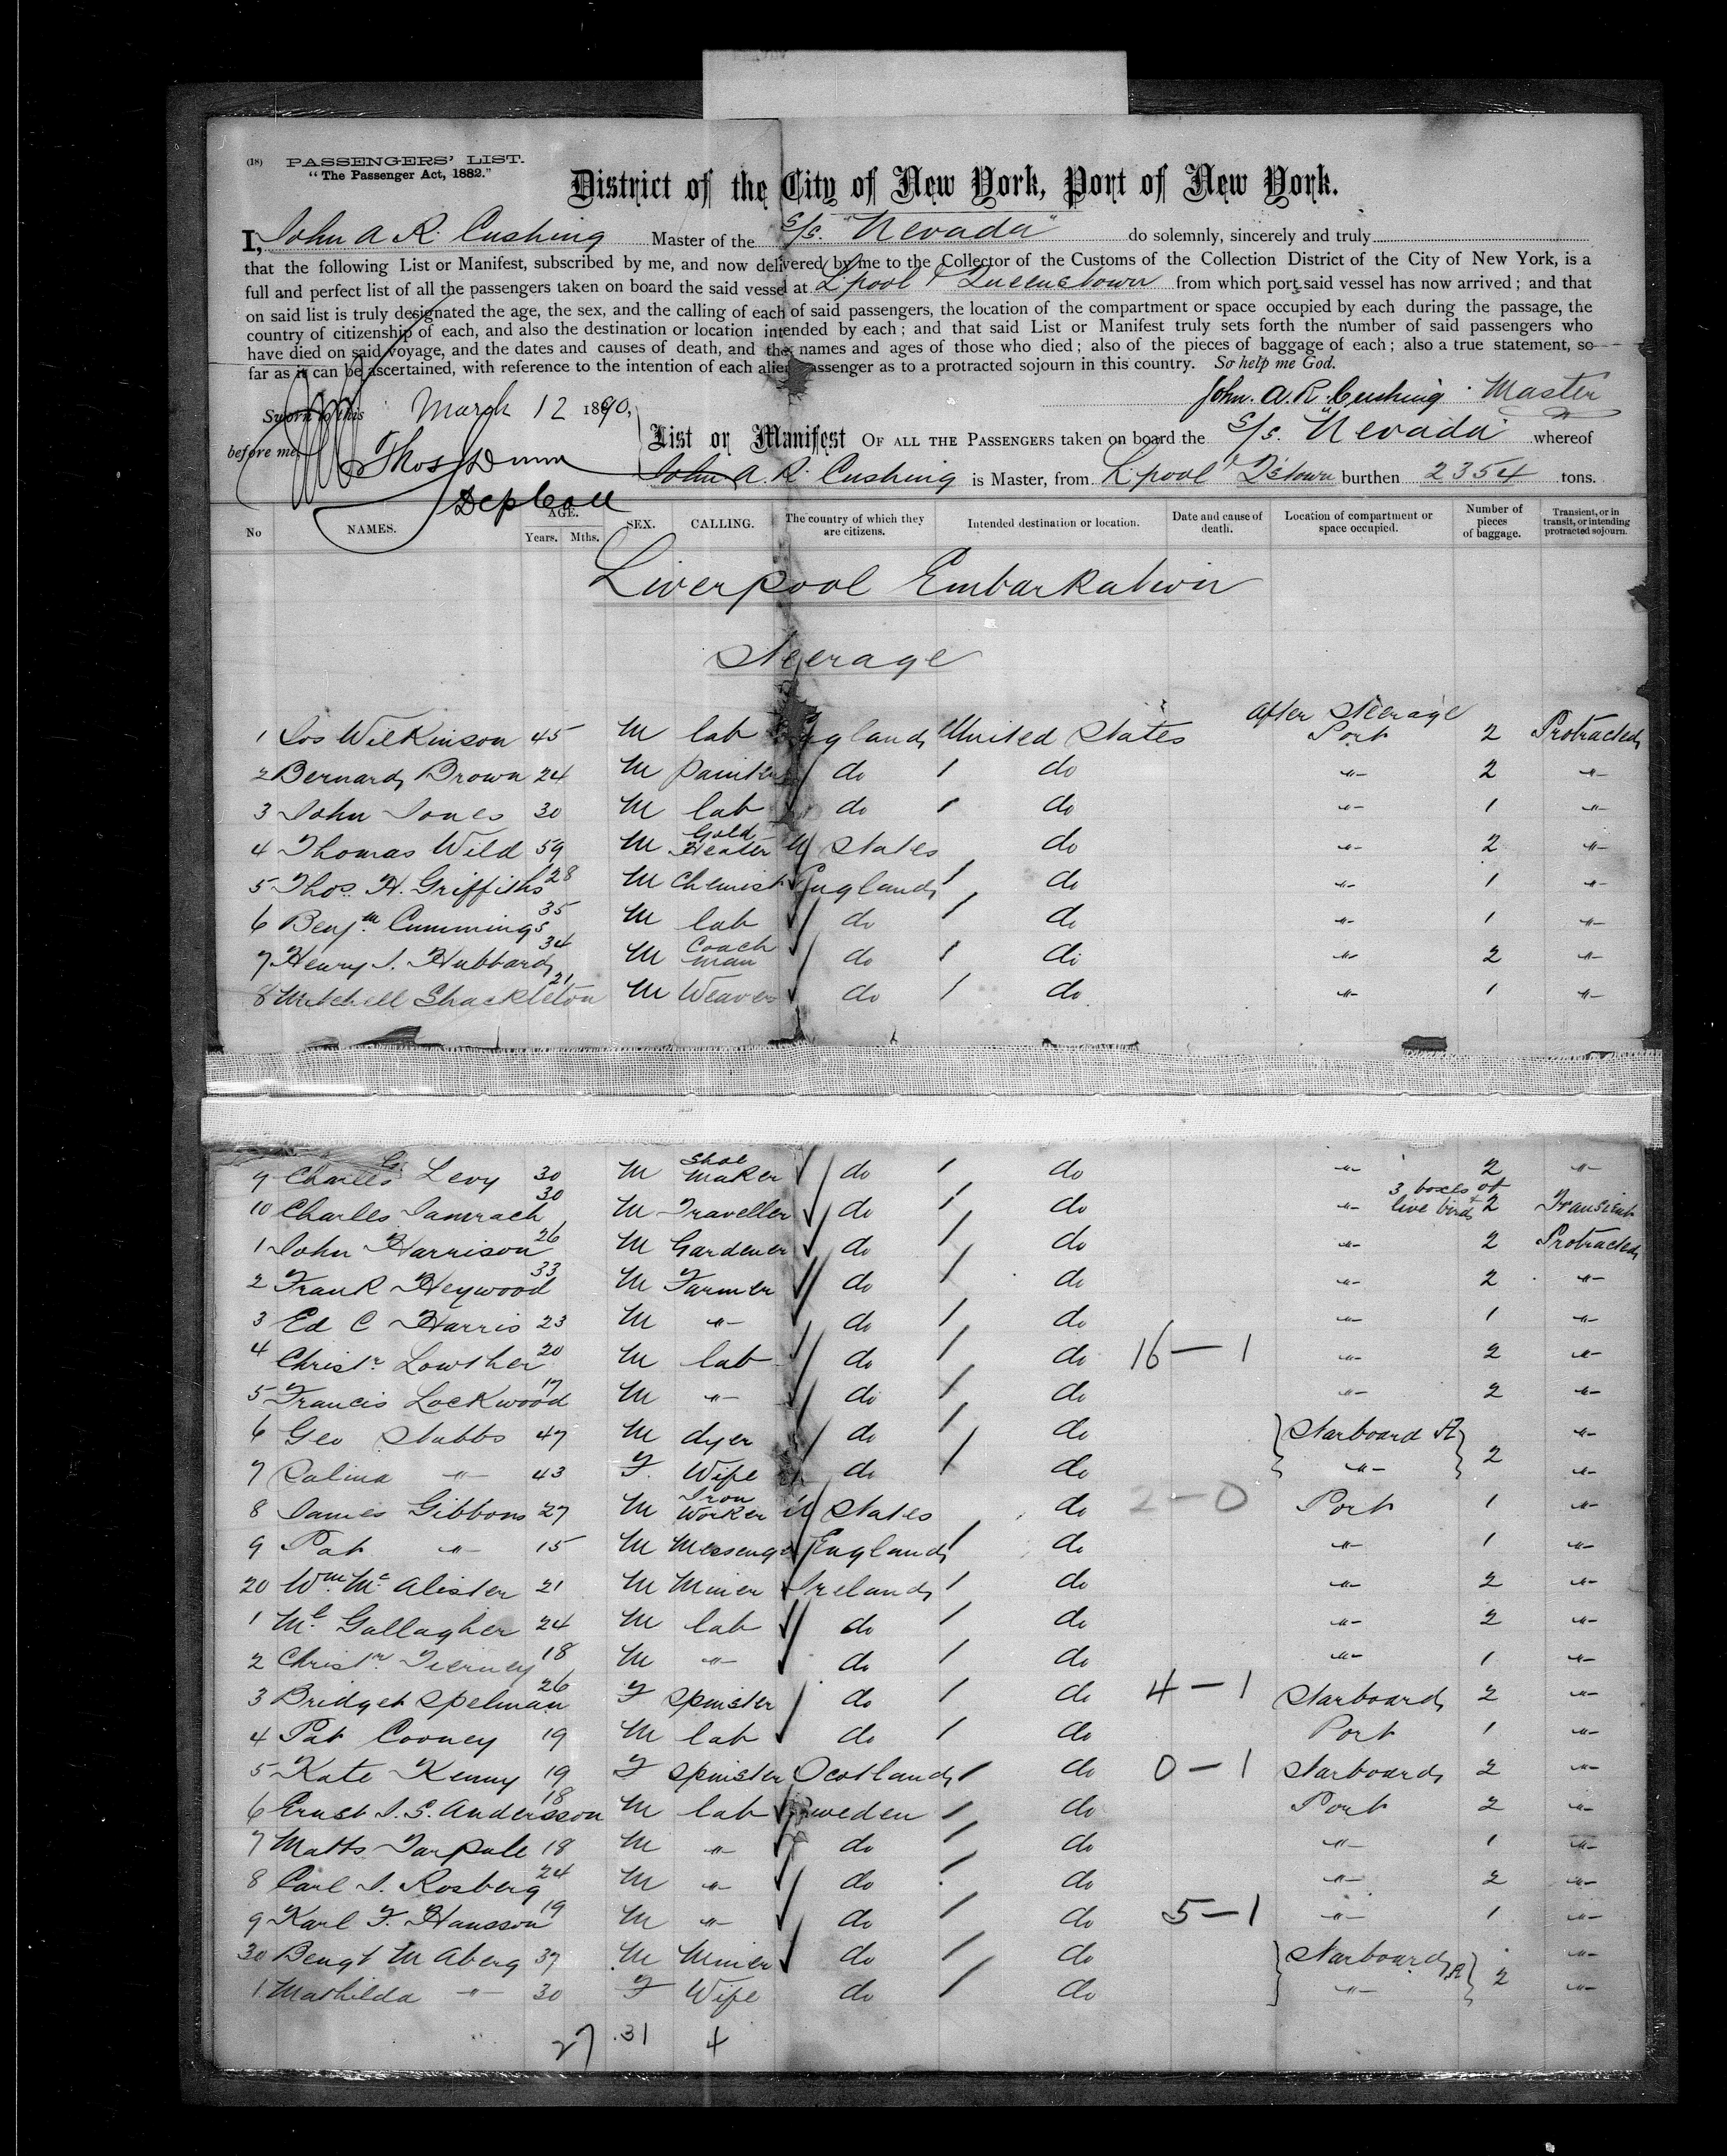 (18) PASSENGERS' LIST.
"The Passenger Act, 1882."
District of the City of New York, Port of New York.
I, John A R. Cushing Master of the S/S. "Nevada" do solemnly, sincerely and truly
that the following List or Manifest, subscribed by me, and now delivered by me to the Collector of the Customs of the Collection District of the City of New York, is a
full and perfect list of all the passengers taken on board the said vessel at L'pool & Queenstown from which port said vessel has now arrived; and that
on said list is truly designated the age, the sex, and the calling of each of said passengers, the location of the compartment or space occupied by each during the passage, the
country of citizenship of each, and also the destination or location intended by each; and that said List or Manifest truly sets forth the number of said passengers who
have died on said voyage, and the dates and causes of death, and the names and ages of those who died; also of the pieces of baggage of each; also a true statement, so
far as it can be ascertained, with reference to the intention of each alien passenger as to a protracted sojourn in this country. So help me God.
John. A. R. Cushing. Master
Sworn to this March 12 1890,
before me Thos Dunn
Dep Coll
List or Manifest OF ALL THE PASSENGERS taken on board the S/S. "Nevada" whereof
John A. R Cushing is Master, from L'pool & Q'stown burthen 2354 tons.
No NAMES. AGE. Years. Mths. SEX. CALLING. The country of which they are citizens. Intended destination or location. Date and cause of death. Location of compartment or space occupied. Number of pieces of baggage. Transient, or in transit, or intending protracted sojourn.
Liverpool Embarkation
Steerage
After Steerage
1 Jos Wilkinson 45 M lab England / United States Port 2 Protracted
2 Bernard Brown 24 M Painter do / do -"- 2 -"-
3 John Jones 30 M lab do / do -"- 1 -"-
4 Thomas Wild 59 M Gold Heater U States do -"- 2 -"-
5 Thos. H. Griffiths 28 M Chemist England / do -"- 1 -"-
6 Benjm Cummings 35 M lab do / do -"- 1 -"-
7 Henry J. Hubbard 34 M Coach man do / do -"- 2 -"-
8 Mitchell Shackleton 21 M Weaver do / do -"- 1 -"-
9 Charles G Levy 30 M Shoe Maker do / do -"- 2 -"-
10 Charles Jamrach 30 M Traveller do / do -"- 3 boxes of live birds + 2 Transient
1 John Harrison 26 M Gardener do / do -"- 2 Protracted
2 Frank Heywood 33 M Farmer do / do -"- 2 -"-
3 Ed C Harris 23 M -"- do / do -"- 1 -"-
4 Christr Lowther 20 M lab do / do 16-1 -"- 2 -"-
5 Francis Lockwood 17 M -"- do / do -"- 2 -"-
6 Geo Stubbs 47 M dyer do / do Starboard A 2 -"-
7 Salina -"- 43 F. Wife do / do -"- -"-
8 James Gibbons 27 M Iron Worker U States do 2-0 Port 1 -"-
9 Pat -"- 15 M Messenger England / do -"- 1 -"-
20 Wm Mc Alister 21 M Miner Ireland / do -"- 2 -"-
1 Ml Gallagher 24 M lab do / do -"- 2 -"-
2 Christr Tierney 18 M -"- do / do -"- 1 -"-
3 Bridget Spelman 26 F Spinster do / do 4-1 Starboard 2 -"-
4 Pat Cooney 19 M lab do / do Port 1 -"-
5 Kate Kenny 19 F Spinster Scotland / do 0-1 Starboard 2 -"-
6 Ernst J. S. Andersson 18 M lab Sweden / do Port 2 -"-
7 Matts Tarpale 18 M -"- do / do -"- 1 -"-
8 Carl J. Rosberg 24 M -"- do / do -"- 2 -"-
9 Karl F. Hansson 19 M -"- do / do 5-1 -"- 1 -"-
30 Bengt M Aberg 37 M Miner do / do Starboard A 2 -"-
1 Mathilda -"- 30 F Wife do / do -"- -"-
27 31 4